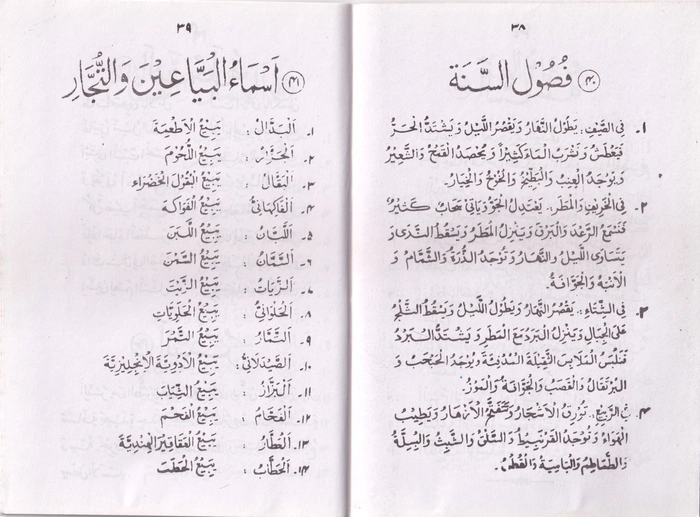 ٣٨
﴿٤٠﴾ فُصُوْلُ السَّنَةِ
١. فِي الصَّيْفِ: يَطُوْلُ النَّهَارُ وَيَقْصُرُ اللَّيْلُ وَيَشْتَدُّ الْحَرُّ
فَيَعْطَشُ وَنَشْرَبُ الْمَاءَ كَثِيْرًا وَيُحْصَدُ الْقَمْحُ وَالشَّعِيْرُ
وَيُوْجَدُ الْعِنَبُ وَالْبِطِّيْخُ وَالْخَوْخُ وَالْخِيَارُ.
٢. فِي الْخَرِيْفِ وَالْمَطَرِ: يَعْتَدِلُ الْجَوُّ وَيَأْتِيْ سَحَابٌ كَثِيْرٌ
فَنَسْمَعُ الرَّعْدَ وَالْبَرْقَ وَيَنْزِلُ الْمَطَرُ وَيَسْقُطُ النَّدٰى وَ
يَتَسَاوَى اللَّيْلُ وَالنَّهَارُ وَتُوْجَدُ الذُّرَةُ وَالشَّمَّامُ وَ
الْأَنْبَةُ وَالْجَوَّافَةُ.
٣. فِي الشِّتَاءِ: يَقْصُرُ النَّهَارُ وَيَطُوْلُ اللَّيْلُ وَيَسْقُطُ الثَّلْجُ
عَلَى الْجِبَالِ وَيَنْزِلُ الْبَرَدُ مَعَ الْمَطَرِ وَيَشْتَدُّ الْبَرْدُ
فَنَلْبَسُ الْمَلَابِسَ الثَّقِيْلَةَ الْمُدْفِئَةَ وَيُوْجَدُ وَ
الْبُرْتُقَالُ وَالْقَصَبُ وَالْجَوَّافَةُ وَالْمَوْزُ.
٤. فِي الرَّبِيْعِ: تُوْرِقُ الْأَشْجَارُ وَتَتَفَتَّحُ الْأَزْهَارُ وَيَطِيْبُ
الْهَوَاءُ وَتُوْجَدُ الْقَرْنَبِيْطُ وَ وَالشِّبِثُ وَالْبِسِلَّةُ
وَالطَّمَاطِمُ وَالْبَامِيَةُ وَالْقُطْنُ.
٣٩
﴿٤١﴾ اَسْمَاءُ الْبَيَّاعِيْنَ وَالتُّجَّارِ
١. اَلْبَدَّالُ : يَبِيْعُ الْاَطْعِمَةَ
٢. اَلْجَزَّارُ : يَبِيْعُ اللُّحُوْمَ
٣. اَلْبَقَّالُ : يَبِيْعُ الْبُقُوْلَ الْخَضْرَاءَ
٤. اَلْفَاكِهَانِيُّ : يَبِيْعُ الْفَوَاكِهَ
٥. اَللَّبَّانُ : يَبِيْعُ اللَّبَنَ
٦. اَلسَّمَّانُ : يَبِيْعُ السَّمْنَ
٧. اَلزَّيَّاتُ : يَبِيْعُ الزَّيْتَ
٨. اَلْحَلْوَانِيُّ : يَبِيْعُ الْحَلَوِيَّاتِ
٩. اَلتَّمَّارُ : يَبِيْعُ التَّمْرَ
١٠. اَلصَّيْدَلَانِيُّ : يَبِيْعُ الْاَدْوِيَةَ الْاِنْجِلِيْزِيَّةَ
١١. اَلْبَزَّازُ : يَبِيْعُ الثِّيَابَ
١٢. اَلْفَحَّامُ : يَبِيْعُ الْفَحْمَ
١٣. اَلْعَطَّارُ : يَبِيْعُ الْعَقَاقِيْرَ الْهِنْدِيَّةَ
١٤. اَلْحَطَّابُ : يَبِيْعُ الْحَطَبَ